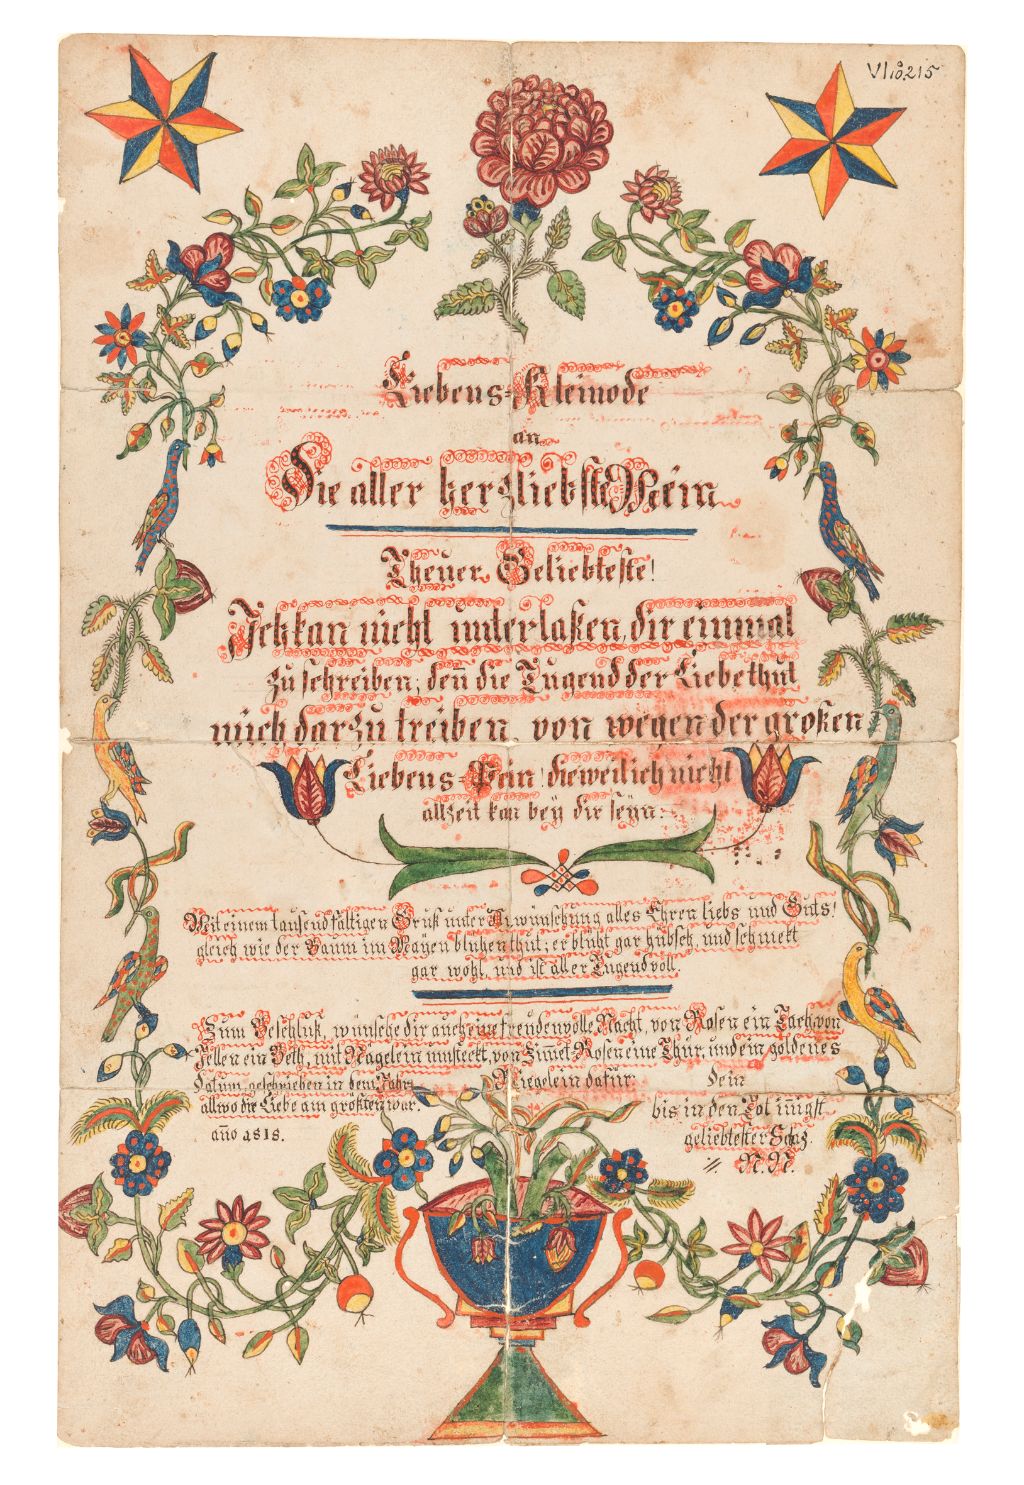 VI 10.215
Liebens-Kleinode
an
Die aller herzliebste Mein
Theuer Geliebteste!
Ich kan nicht unterlaßen, dir einmal
zu schreiben; den die Tugend der Liebe thut
mich darzu treiben von wegen der großen
Liebens-Pein! dieweil ich nicht
allzeit kan beÿ dir seÿn:
Mit einem tausendfältigen Gruß unter Anwünschung alles Ehren liebs und Guts!
gleich wie der Baum im Mayen blühen thut; er blüht gar hübsch, und schmekt
gar wohl, und ist aller Tugend voll.
Zum Beschluß, wünsche dir auch eine freudenvolle Nacht, von Rosen ein Dach, von
ein Beth, mit Nägelein umsteckt, von Zim̄et-Rosen eine Thür, und ein goldenes
Riegelein dafür.
Datum, geschrieben in dem Jahr
allwo die Liebe am größten war.
an̄o 1818.
Dein
bis in den Tot in̄igst
geliebtester Schaz
N. N.